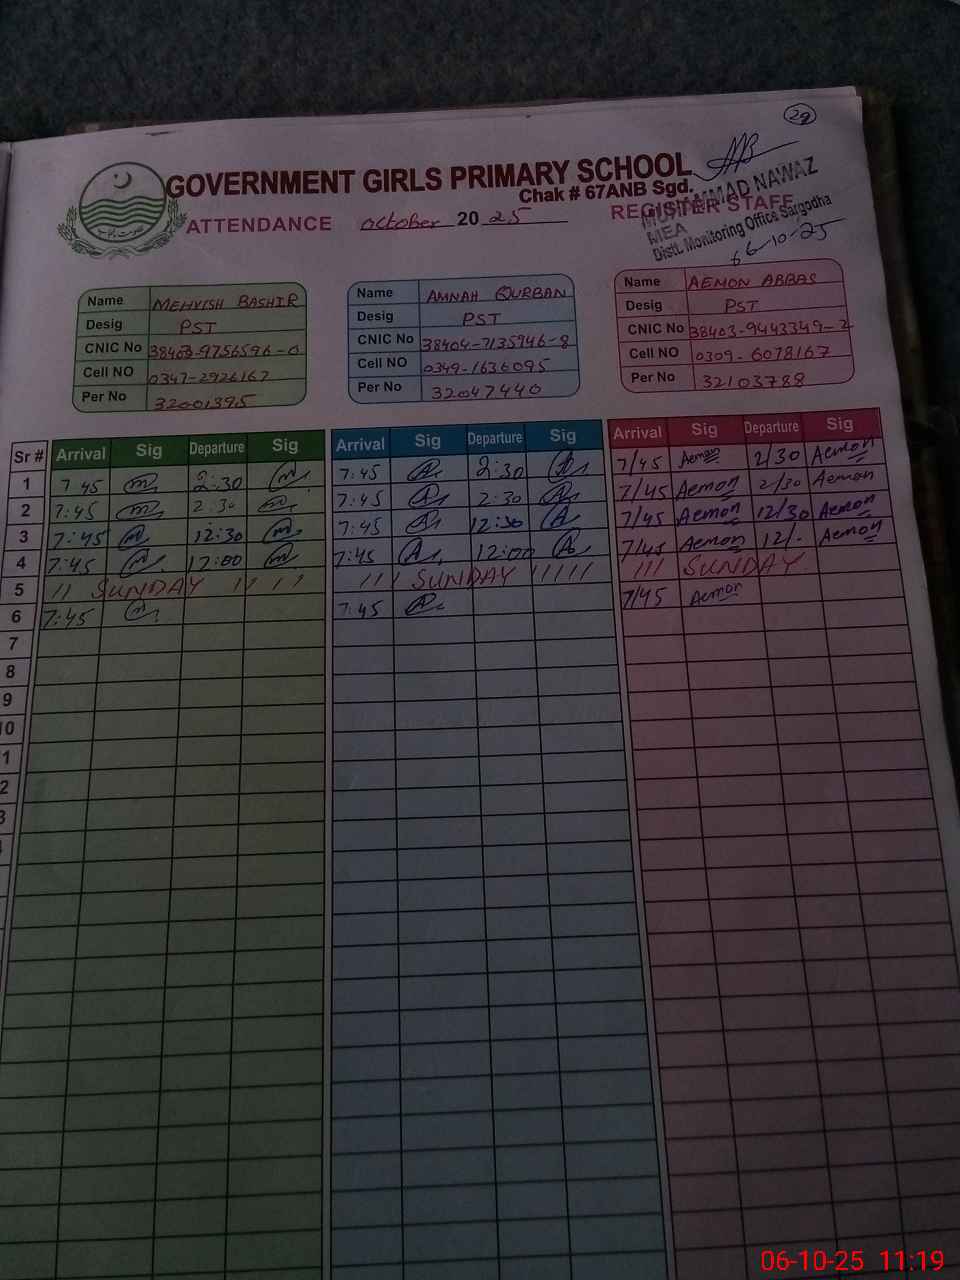 29
GOVERNMENT GIRLS PRIMARY SCHOOL
Chak # 67ANB Sgd.
ATTENDANCE October 2025 REGISTER STAFF
MUHAMMAD NAWAZ
MEA
Distt. Monitoring Office Sargodha
06-10-25
Name MEHVISH BASHIR
Desig PST
CNIC No 38403-9756596-0
Cell NO 0347-2926167
Per No 32001395
Name AMNAH QURBAN
Desig PST
CNIC No 38404-7135946-8
Cell NO 0349-1636095
Per No 32047440
Name AEMON ABBAS
Desig PST
CNIC No 38403-9443349-2
Cell NO 0309-6078167
Per No 32103788
Sr # Arrival Sig Departure Sig Arrival Sig Departure Sig Arrival Sig Departure Sig
1 7 45 m 2:30 m 7:45 A 2:30 A 7/45 Aemon 2/30 Aemon
2 7:45 m 2:30 m 7:45 A 2:30 A 7/45 Aemon 2/30 Aemon
3 7:45 m 12:30 m 7:45 A 12:30 A 7/45 Aemon 12/30 Aemon
4 7:45 m 12:00 m 7:45 A 12:00 A 7/45 Aemon 12/- Aemon
5 // SUNDAY // // /// SUNDAY ///// /// SUNDAY
6 7:45 m 7:45 A 7/45 Aemon
7
8
9
10
1
2
3
06-10-25 11:19